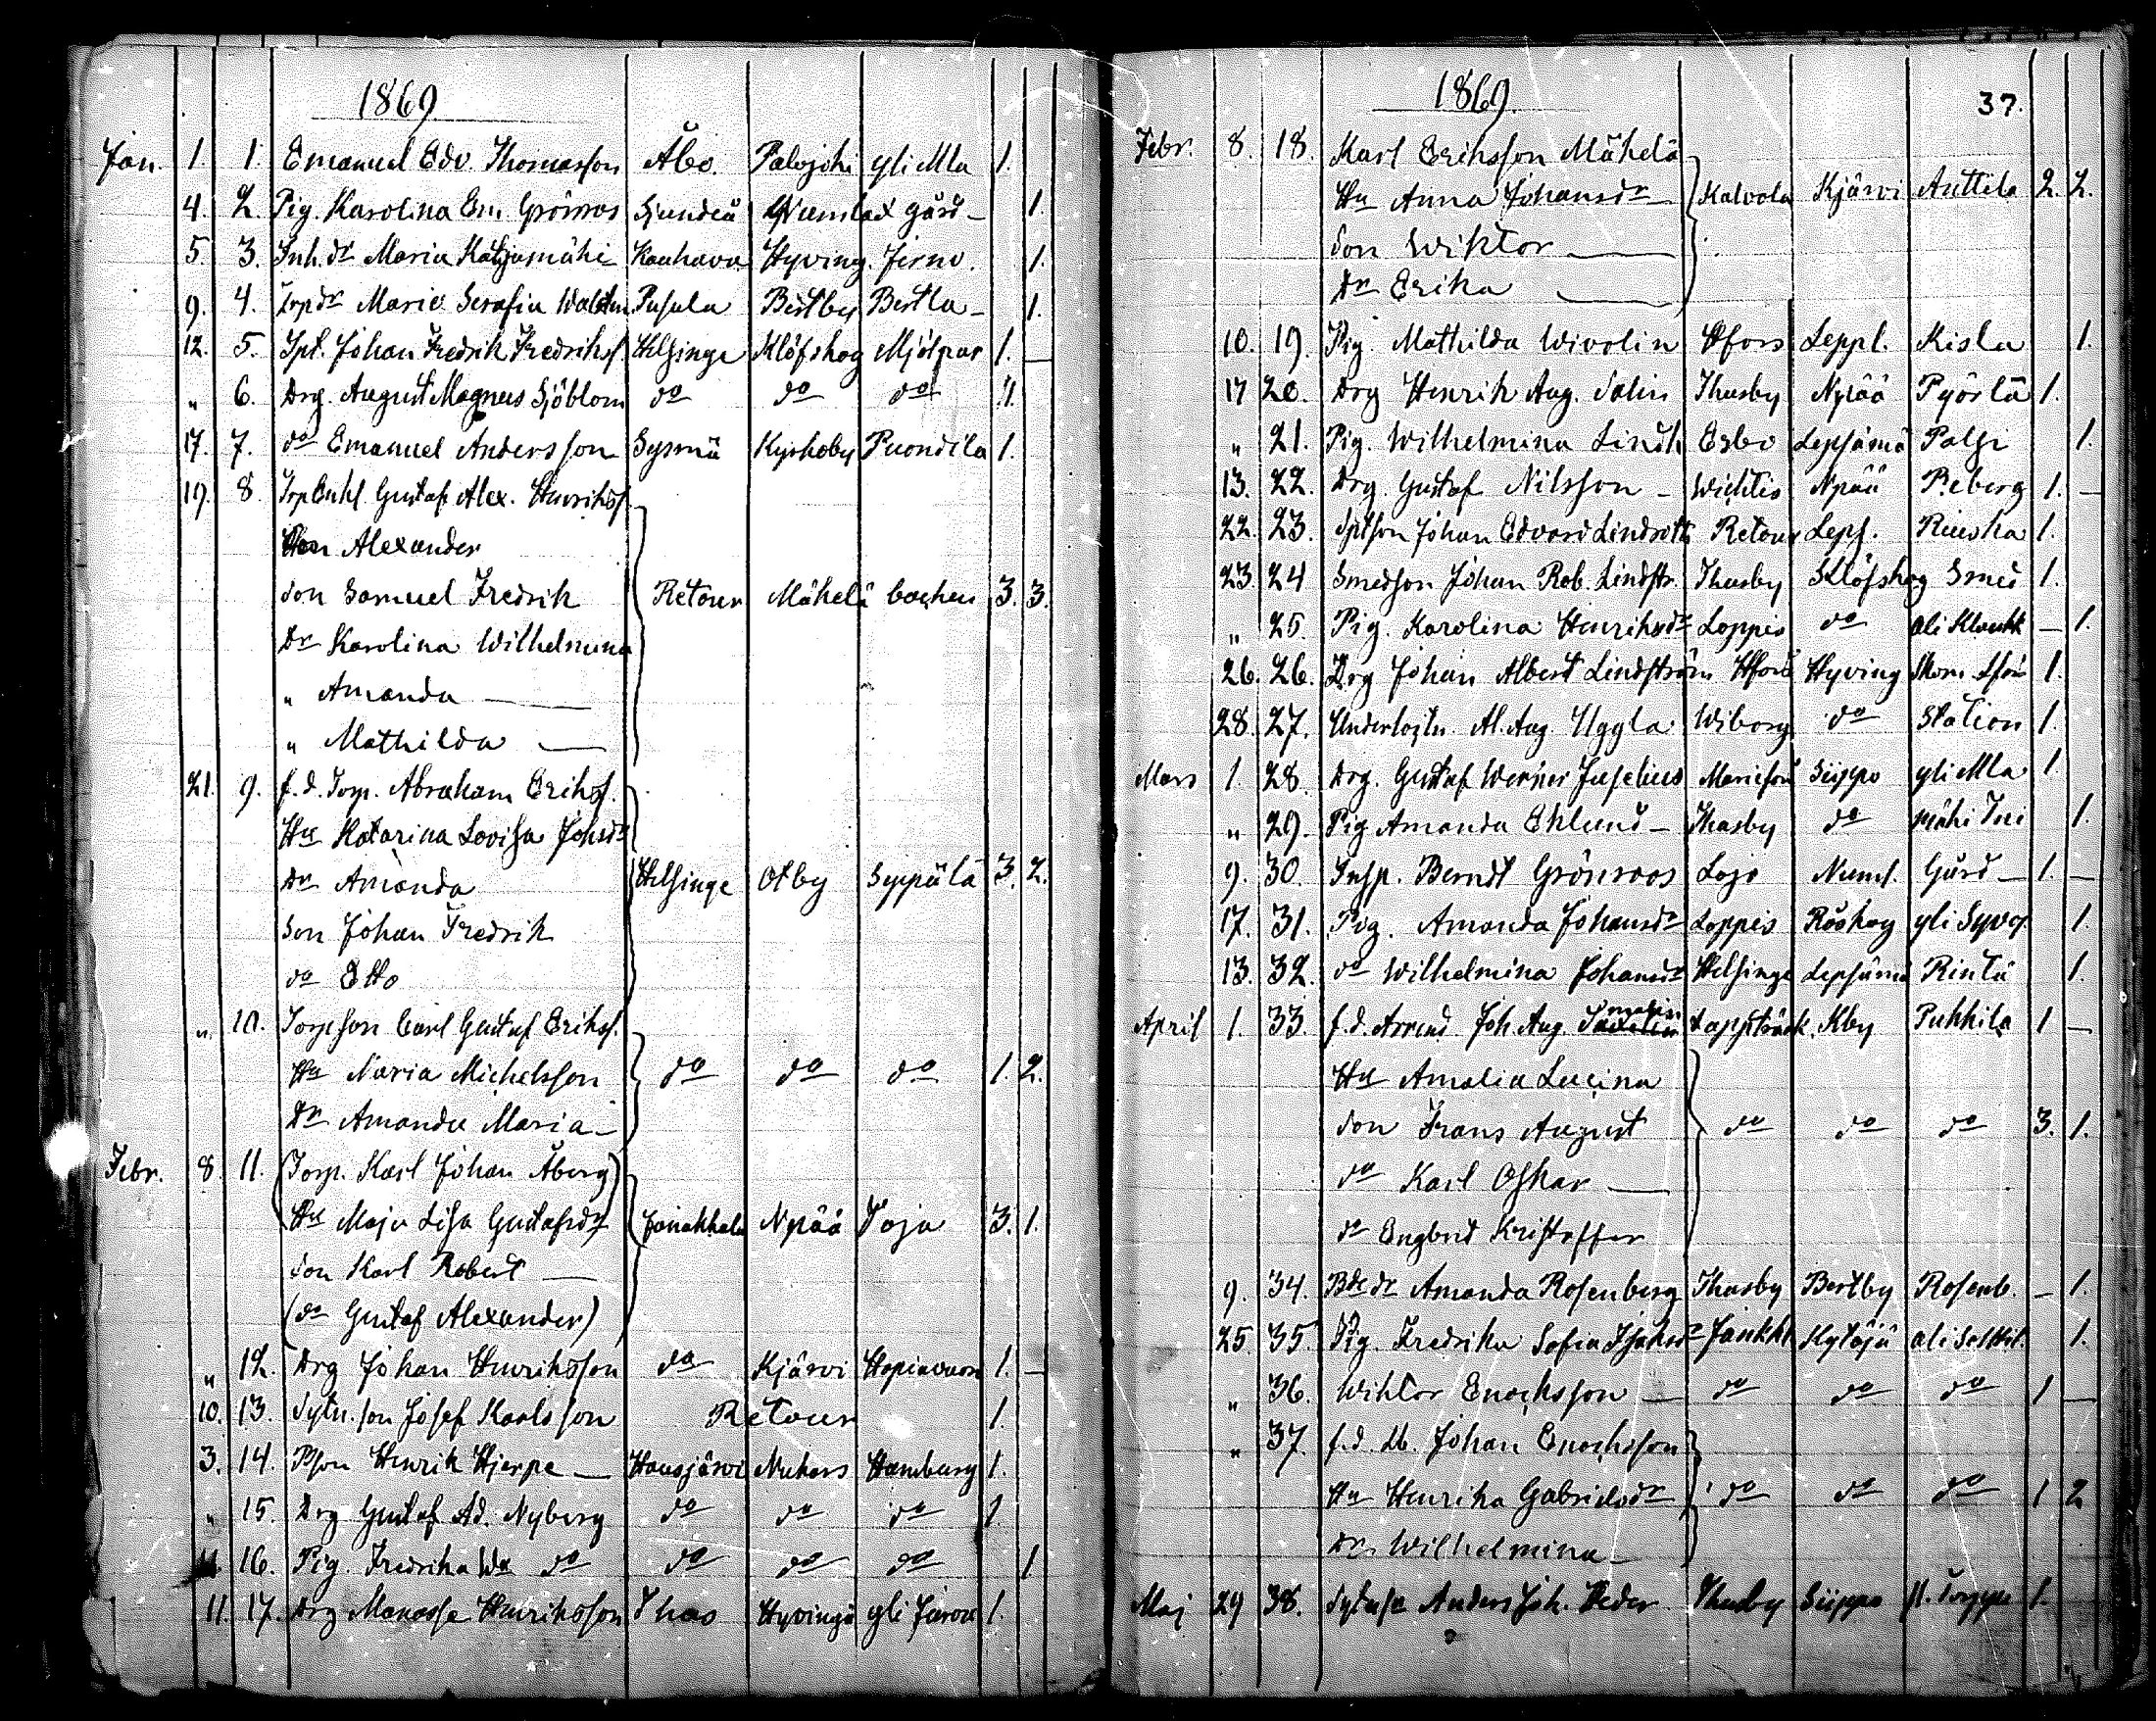 1869
Jan. 1. 1. Emanuel Edv. Thomasson Åbo. Palojoki yli Mla 1.
4. 2. Pig. Karolina Em. Grönroos Sjundeå gård 1.
5. 3. Inh. dr Maria Kauhava Hyving. 1.
9. 4. Torpdr Maria Serafia Pusula Bertby Bertla 1.
12. 5. Johan Fredrik Fredrikss. Helsinge Klöfskog Mjölnar 1. —
" 6. Drg. August Magnus Sjöblom do do do 1.
17. 7. do Emanuel Andersson Sysmä Kyrkoby Puondila 1.
19. 8. Torp Enkl. Gustaf Alex. Henrikss.
Alexander
Son Samuel Fredrik Retour Mähelä backen 3. 3.
Dr Karolina Wilhelmina
" Amanda —
" Mathilda —
21. 9. f.d. Torp. Abraham Erikss.
Hu Katarina Lovisa Johsdr
Dr Amanda Helsinge Otby Seppälä 3. 2.
Son Johan Fredrik
do Otto
" 10. Torpson Carl Gustaf Erikss.
Hu Maria Michelsson do do do 1. 2.
Dr Amanda Maria —
Febr. 8. 11. (Torp. Karl Johan Åberg)
(Hu Maja Lisa Gustafsdr) Janakkala Npää Toja 3. 1.
Son Karl Robert —
(do Gustaf Alexander)
" 12. Drg Johan Henriksson do Kjärvi 1. —
10. 13. Sytn. son Josef Karlsson Retour 1.
3. 14. Pson Henrik Hjerpe — Hausjärvi Nukars Hamburg 1.
" 15. Drg Gustaf Ad. Nyberg do do do 1.
16. Pig. Fredrika Wa do do do do 1
11. 17. Drg Manasse Henriksson Thas Hyvingä yli 1.
1869. 37.
Febr. 8. 18. Karl Eriksson Mäkelä
Hu Anna Johansdr Kalvola Kjärvi Anttila 2. 2.
Son Wiktor —
Dr Erika —
10. 19. Pig. Mathilda Wivolin Hfors Leppl. Kisla 1.
17 20. Drg Henrik Aug. Salin Thusby Npää Pyörlä 1.
" 21. Pig. Wilhelmina Lindh Esbo Lepsämä Palsi 1.
13. 22. Drg. Gustaf Nilsson — Wichtis Npää Reberg 1. —
22. 23. Sptson Johan Edvard Retour Leps. 1.
23. 24 Smedson Johan Rob. Lindstr. Thusby Klöfskog Smed 1.
" 25. Pig. Karolina Henriksdr Loppis do ali — 1.
26. 26. Drg Johan Albert Lindström Hfors Hyving 1.
28. 27. Al. Aug. Uggla Wiborg do Station 1.
Mars 1. 28. Drg. Gustaf Werner Juselius Siippo yli Mla 1.
" 29. Pig Amanda Ehlund — Thusby do 1.
9. 30. Insp. Berndt Grönroos Lojo Numl. Gård — 1. —
17. 31. Pig. Amanda Johansdr Loppis Röökog yli 1.
13. 32. do Wilhelmina Johansdr Helsinge Lepsämä Rintä 1.
April 1. 33. f.d. Arrend. Joh. Aug. Kby Puhkila 1 —
Hu Amalia Lucina
Son Frans August do do do 3. 1.
do Karl Oskar —
do Engbert Kristoffer
9. 34. Amanda Rosenberg Thusby Bertby Rosenb. — 1.
25. 35. Pig. Fredrika Sofia Kytäjä ali 1.
" 36. Wiktor Enochsson — do do do 1 —
" 37. f.d. Johan Enochsson
Hu Henrika Gabrielsdr do do do 1 2
Dr Wilhelmina —
Maj 29 38. Anders Joh. Thusby Siippo 1.